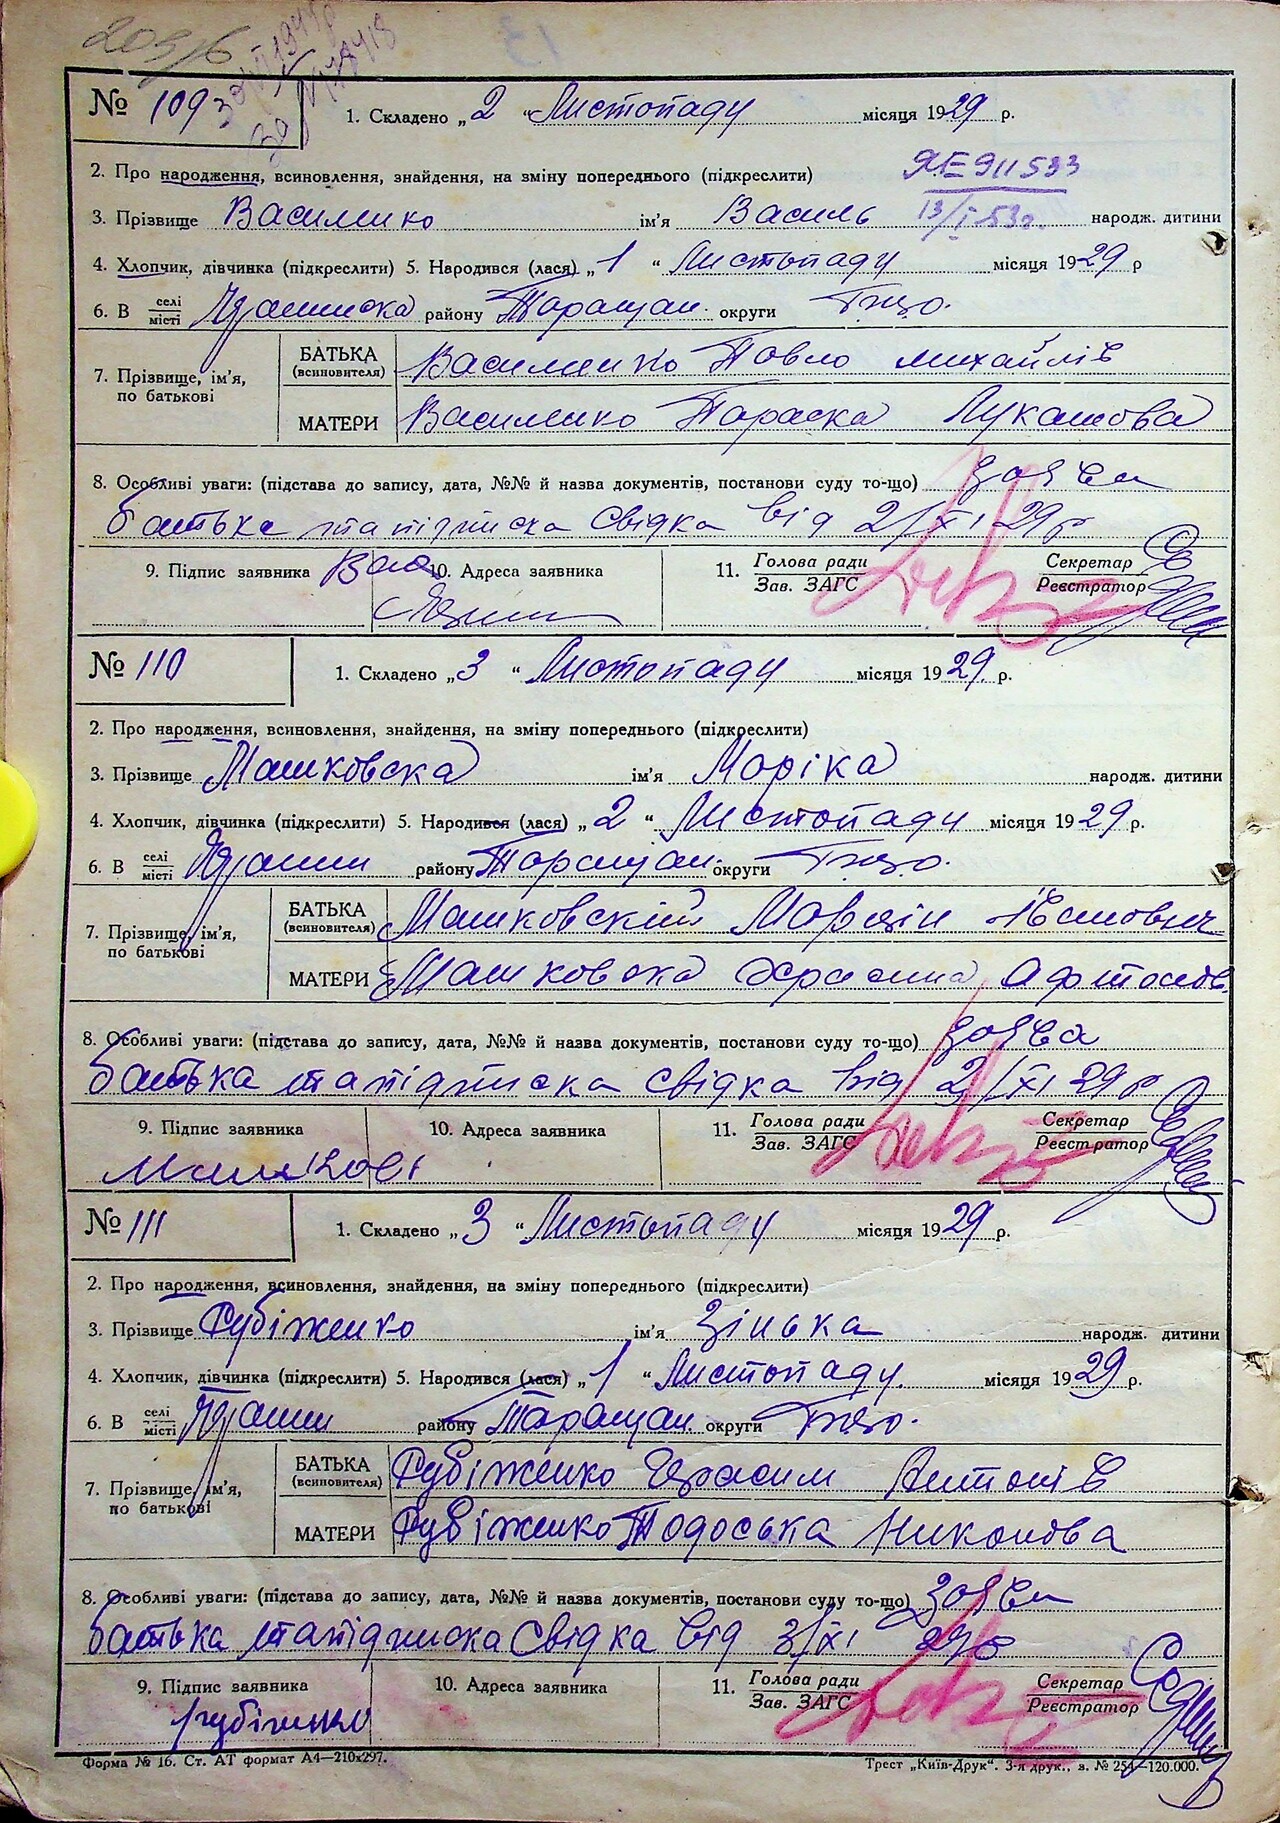 209/6
№ 109
1. Складено „2 “ Листопаду місяця 1929 р.
2. Про народження, всиновлення, знайдення, на зміну попереднього (підкреслити) ЯЕ 911533
3. Прізвище Василенко ім'я Василь 13/I 53р. народж. дитини
4. Хлопчик, дівчинка (підкреслити) 5. Народився (лася) „1 “ Листопаду місяця 1929 р
6. В селі місті району Таращан. округи
7. Прізвище, ім'я, по батькові
БАТЬКА (всиновителя) Василенко Павло Михайлів
МАТЕРИ Василенко Параска Лукашова
8. Особливі уваги: (підстава до запису, дата, №№ й назва документів, постанови суду то-що) заява
батька та підписка свідка від 2/XI 29р
9. Підпис заявника Вас 10. Адреса заявника 11. Голова ради Зав. ЗАГС Секретар Реєстратор
№ 110
1. Складено „3 “ Листопаду місяця 1929 р.
2. Про народження, всиновлення, знайдення, на зміну попереднього (підкреслити)
3. Прізвище Машковська ім'я Маріка народж. дитини
4. Хлопчик, дівчинка (підкреслити) 5. Народився (лася) „2 “ Листопаду місяця 1929 р.
6. В селі місті району Таращан. округи
7. Прізвище, ім'я, по батькові
БАТЬКА (всиновителя) Машковский
МАТЕРИ Машковска
8. Особливі уваги: (підстава до запису, дата, №№ й назва документів, постанови суду то-що) заява
батька та підписка свідка від 2/XI 29р
9. Підпис заявника 10. Адреса заявника 11. Голова ради Зав. ЗАГС Секретар Реєстратор
№ 111
1. Складено „3 “ Листопаду місяця 1929 р.
2. Про народження, всиновлення, знайдення, на зміну попереднього (підкреслити)
3. Прізвище ім'я Зінька народж. дитини
4. Хлопчик, дівчинка (підкреслити) 5. Народився (лася) „1 “ Листопаду місяця 1929 р.
6. В селі місті району Таращан. округи
7. Прізвище, ім'я, по батькові
БАТЬКА (всиновителя) Герасим Антонів
МАТЕРИ Тодоська Никонова
8. Особливі уваги: (підстава до запису, дата, №№ й назва документів, постанови суду то-що) заява
батька та підписка свідка від 3/XI 29р
9. Підпис заявника 10. Адреса заявника 11. Голова ради Зав. ЗАГС Секретар Реєстратор
Форма № 16. Ст. АТ формат А4—210х297. Трест „Київ-Друк“. 3-я друк., з. № 254—120.000.